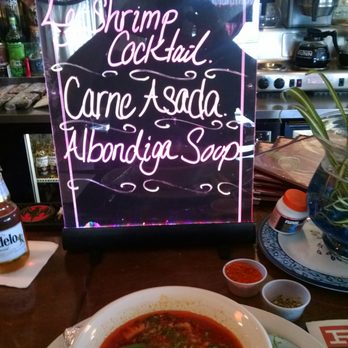 Shrimp
Cocktail.
Carne Asada.
Albondiga Soup
delo